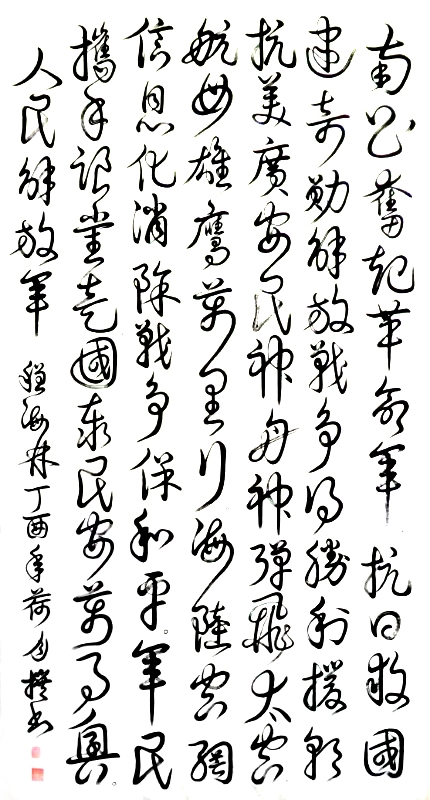 南昌奮起革命軍 抗日救國
建奇勋解放戰争得勝利援朝
抗美廣安民神舟神弹飛太空
航母雄鷹萬里行海陸空網
信息化消除戰争保和平軍民
攜手國泰民安萬事興
人民解放軍 程海林丁酉年荷月撰书